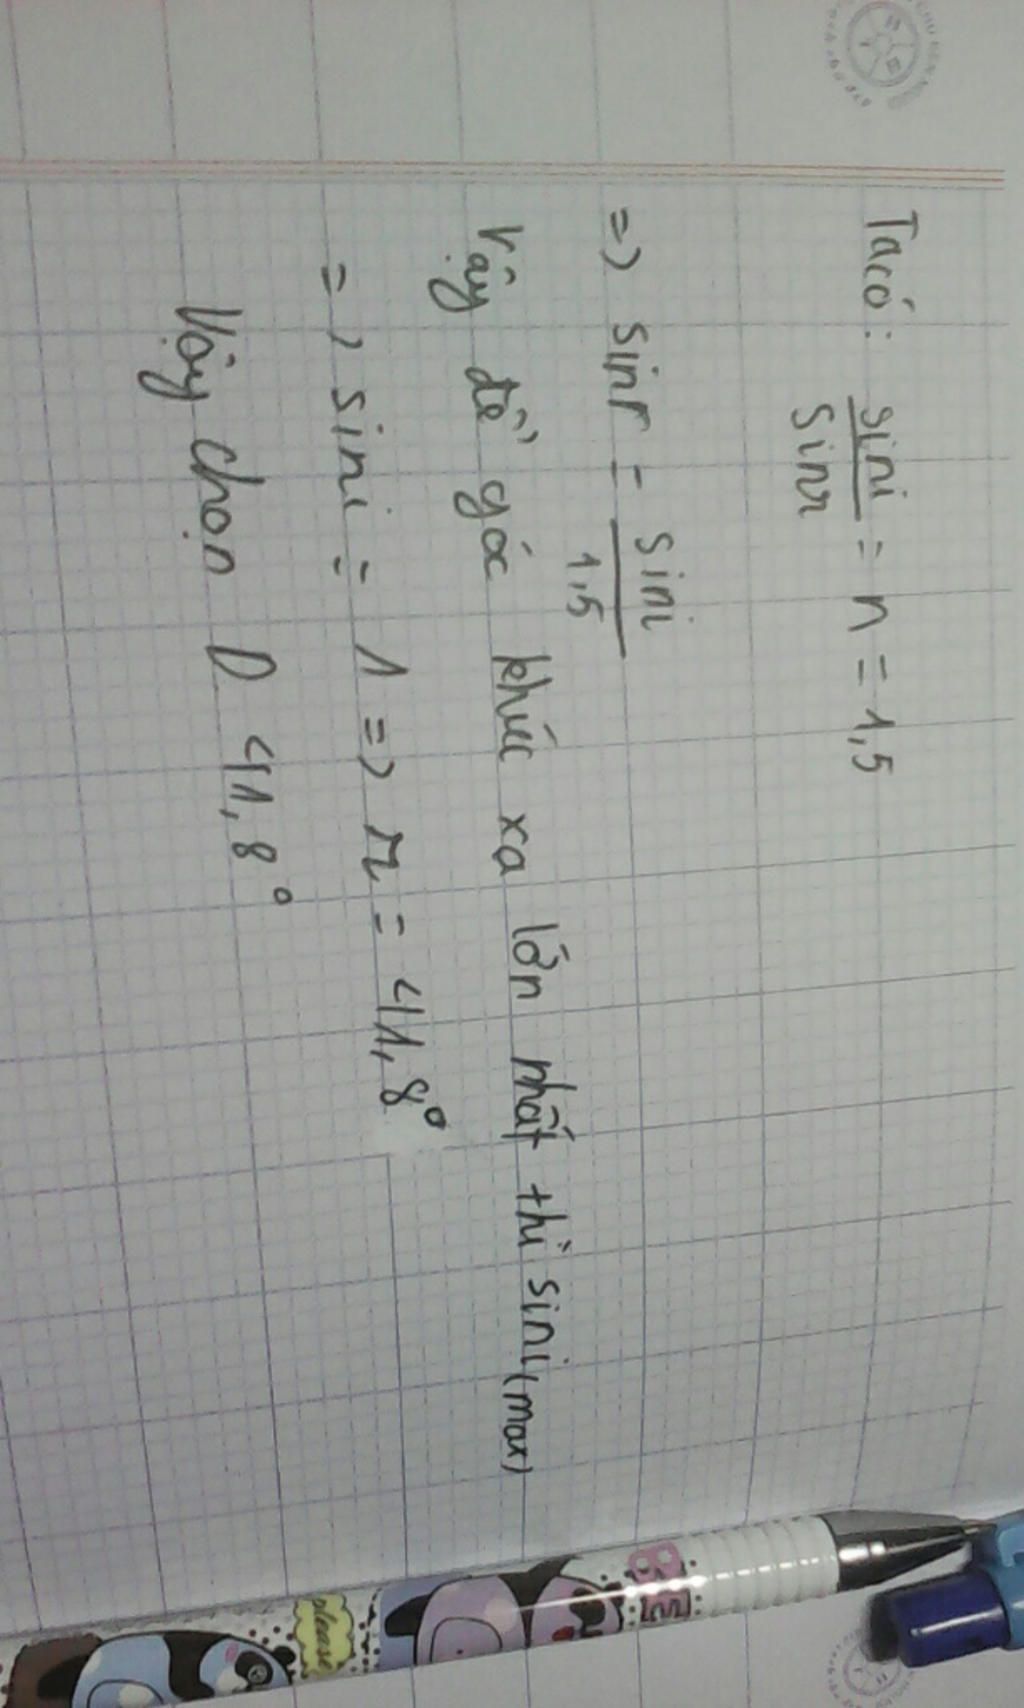 Ta có: sini/sinr = n = 1,5
=> sinr = sini/1,5
Vậy để góc khúc xạ lớn nhất thì sini(max)
=> sini = 1 => r = 41,8°
Vậy chọn D 41,8°
BE
please